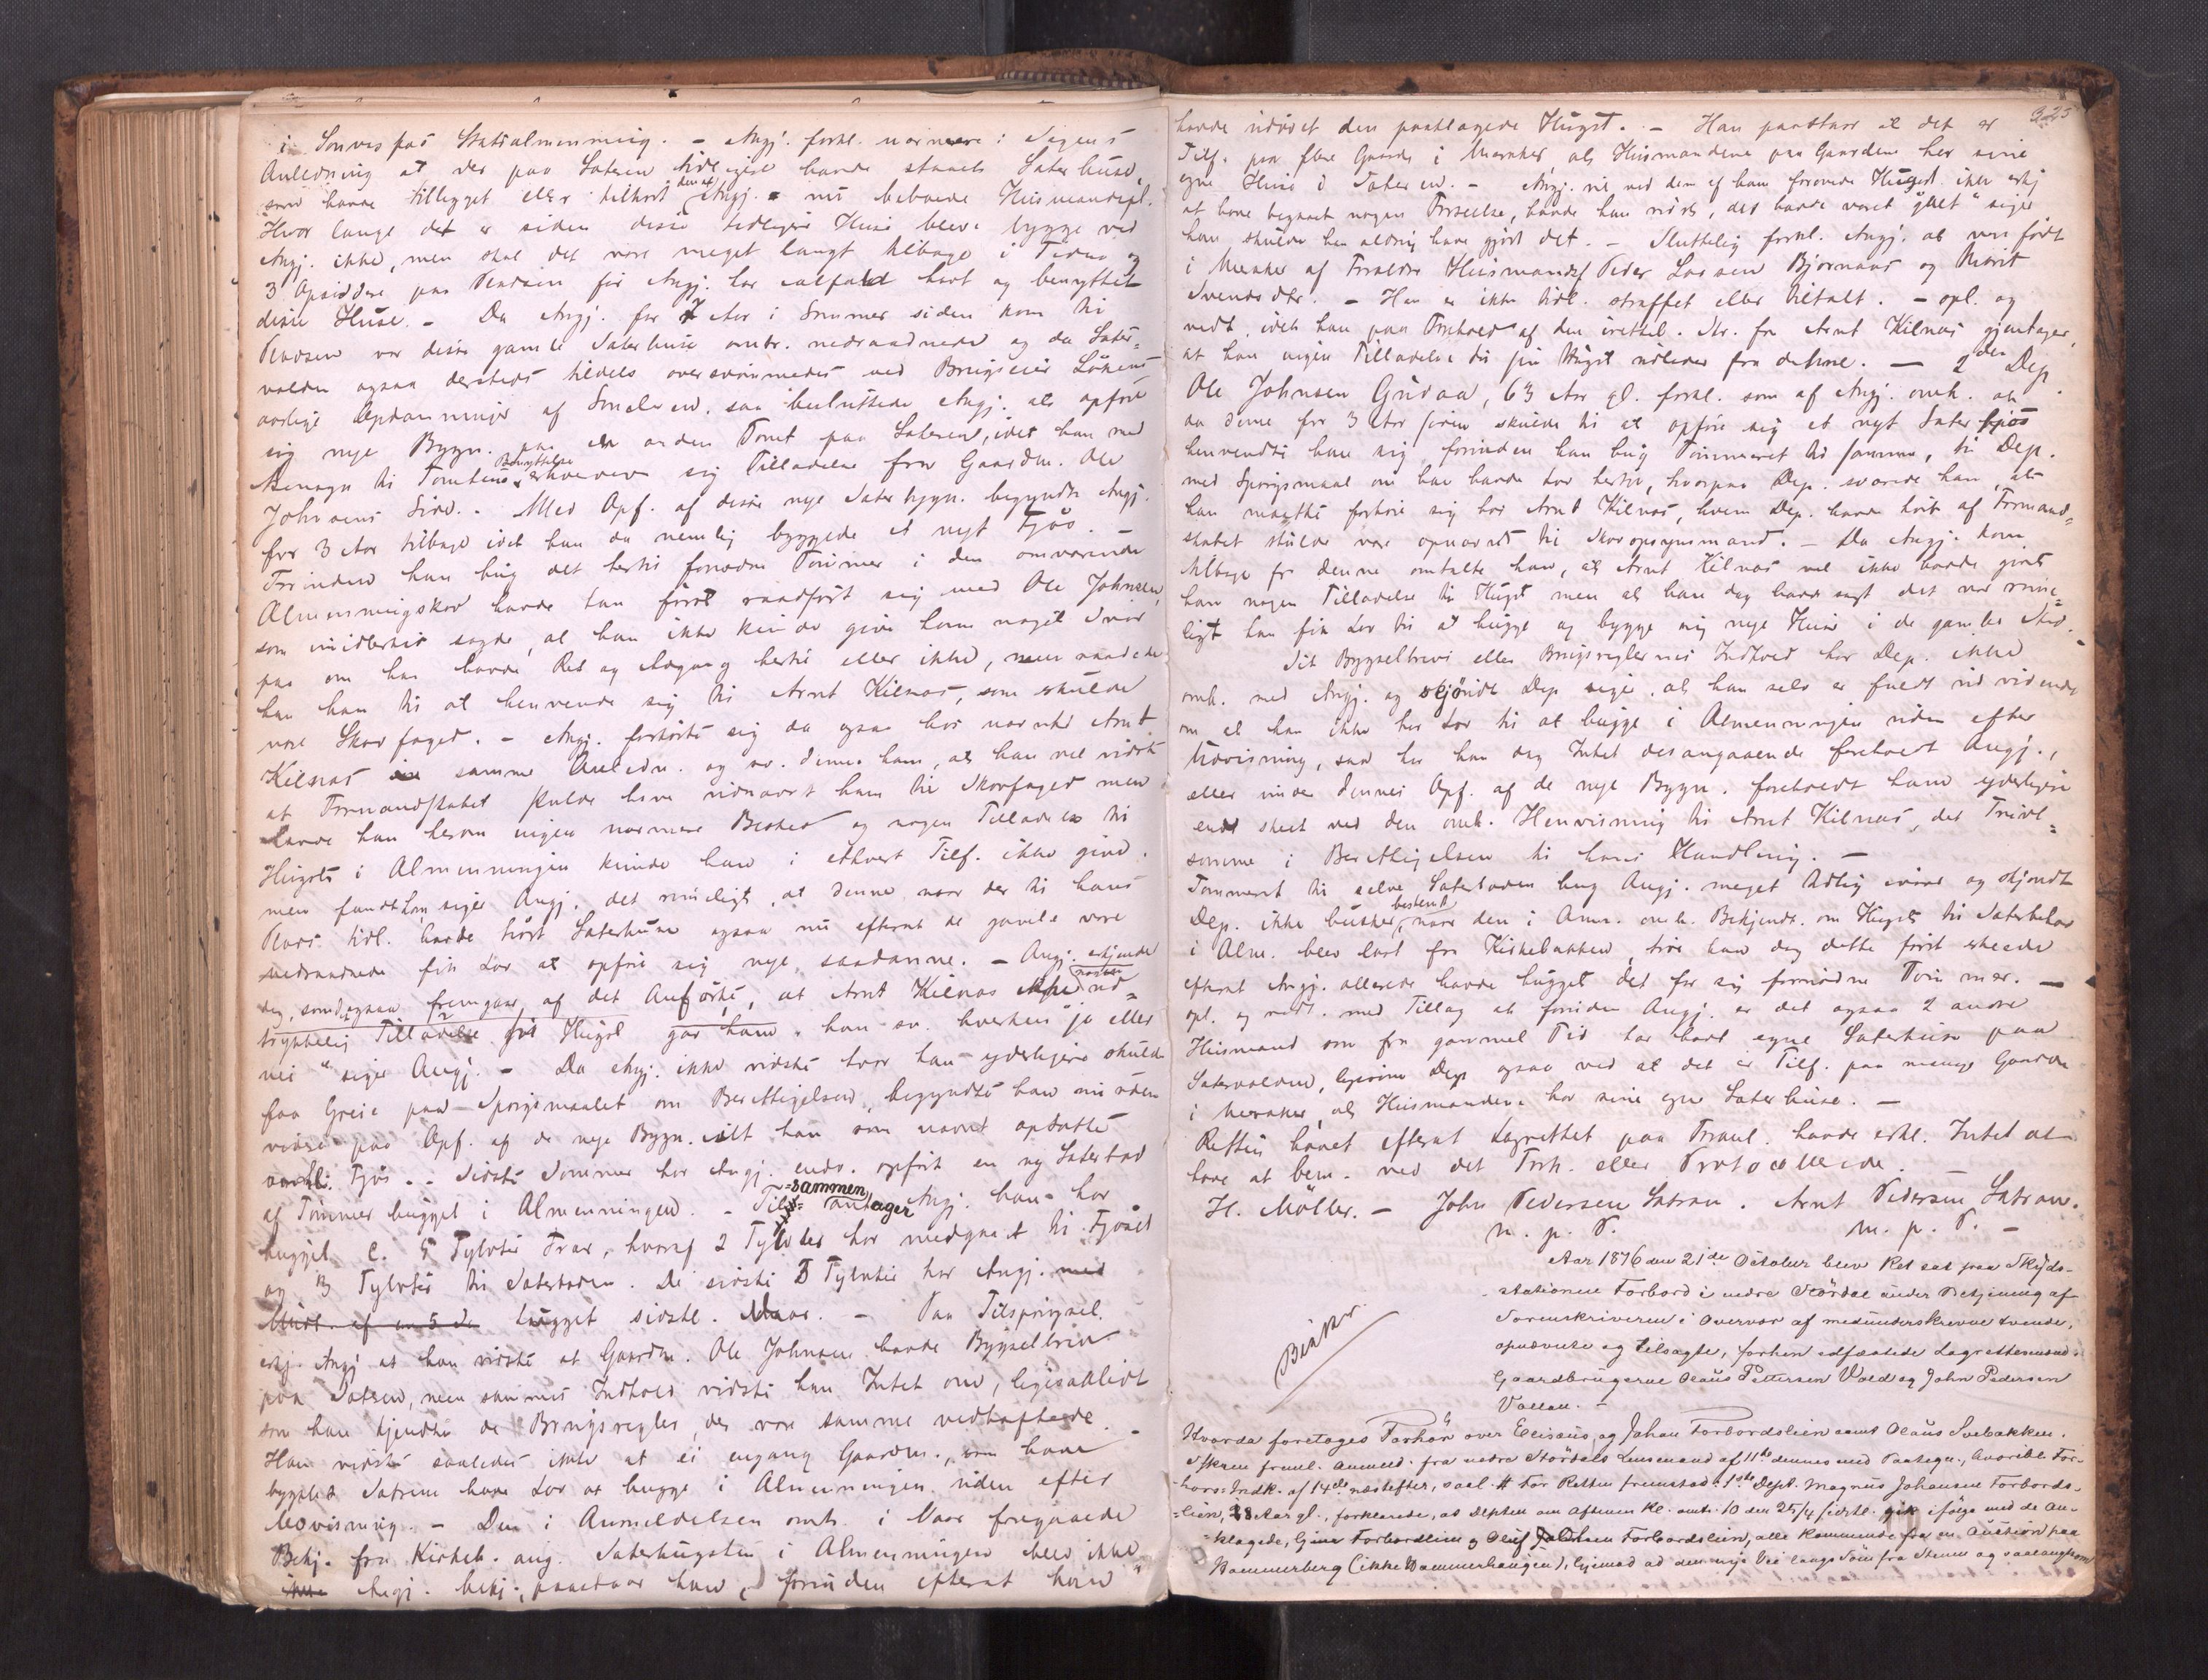 i Sonvesfos Statsalmenning. - Angj. forkl. nærmere: Sagens
Anledning at der paa Sæteren tidligere havde staaet Sæterhuse,
som havde tilligget eller tilhørt den af Angj. nu beboede Husmandspl.
Hvor længe det er siden disse tidligere Huse bleve bygge ved
Angj. ikke, men skal det være meget langt tilbage i Tiden og
3 Opsiddere paa Pladsen før Angj. har ialfald havt og benyttet
disse Huse. - Da Angj. for 7 Aar i Sommer siden kom til
Pladsen var disse gamle Sæterhuse omtr. nedraadnede og da Sæter-
volden ogsaa dersteds tildels oversvømmedes ved Brugseier
aarlige Opdæmninger af so besluttede Angj. at opføre
sig nye Bygn. paa en anden Tomt paa Sæteren, idet han med
Hensyn til Tomtens Benyttelse erhvervede sig Tilladelse fra Gaardm. Ole
Johnsens Side. - Med Opf. af disse nye Sæterbygn. begyndte Angj.
for 3 Aar tilbage idet han da nemlig byggede et nyt Fjøs -
Forinden han hug det hertil fornødne Tømmer i den omværende
Almenningskov havde han først raadført sig med Ole Johnsen,
som imidlertid sagde, at han ikke kunde give ham noget Svar
paa om han havde Ret og Adgang hertil eller ikke, men raadede
han ham til at henvende sig til Arnt Kilnæs, som skulde
være Skovfoged. - Angj. forhørte sig da ogsaa hos nævnte Arnt
Kilnæs i samme Anledn. og sv. denne ham, at han vel vidste
at Formandskabet skulde have udnævnt ham til Skovfoged men
havde han herom ingen nærmere Besked og nogen Tilladelse til
Hugst i Almenningen kunde han i ethvert Tilf. ikke give.
men fandt han, siger Angj. det rimeligt, at denne naar der til hans
Plads tidl. havde hørt Sæterhuse ogsaa nu efterat de gamle vare
nedraadnede fik Lov at opføre sig nye saadanne. - Angj. erkjender
dog, som ogsaa fremgaar af det Anførte, at Arnt Kilnæs ikke nogen ud-
trykkelig Tilladelse til Hugst gav ham. han sv. hverken "ja eller
nei" siger Angj. - Da Angj. ikke vidste hvor han yderligere skulde
faa Greie paa Spørgsmaalet om Berettigelsen, begyndte han nu uden
videre paa Opf. af de nye Bygn. idet han som nævnt opsatte
omhl. Fjøs. - Sidste Sommer har Angj. endv. opført en ny Sæterbod
af Tømmer hugget i Almenningen. - Tilsammen antager Angj. han har
hugget c. 5 Tylvter Trær, hvoraf 2 Tylvter har medgaaet til Fjøset
og 3 Tylvter til Sæterboden. De sidste 3 Tylvter har Angj.
hugget sidstl. Vaar. - Paa Tilspørgsel
erkj. Angj. at han vidste at Gaardm. Ole Johnsen havde Bygselbrev
paa Sætren, men sammes Indhold vidste han Intet om, ligesaalidt
som han kjendte de Brugsregler, der vare samme vedhæftede.
Han vidste saaledes ikke at ei engang Gaardm., som havde
bygslet Sætren havde Lov at hugge i Almenningen uden efter
Udvisning. - Den i Anmeldelsen omh. i Vaar foregaaede
Bekj. fra Kirkeb. ang. Sæterhugsten i Almenningen blev ikke
Angj. bekj., paastaar han, forinden efterat han
225
havde udøvet den paaklagede Hugst. - Han paastaar at det er
Tilf. paa flere Gaarde i Meraker at Husmændene paa Gaardene har sine
egne Huse i Sæteren. - Angj. vil ved den af ham forøvede Hugst ikke erkj.
at have begaaet nogen Forseelse, havde han vidst, det havde været "galt" siger
han, skulde han aldrig have gjort det. - Sluttelig forkl. Angj. at være født
i Meraker af Forældre Husmandsf. Peder Larsen Bjørnaas og Marit
Svendsdtr. - Han er ikke tidl. straffet eller tiltalt. - opl. og
vedt. idet han paa Forehold af den Skr. fra Arnt Kilnæs gjentager,
at han ingen Tilladelse til sin Hugst udleder fra denne. - 2den Dep.
Ole Johnsen Gudaa, 63 Aar gl. forkl. som af Angj. omh. at
da denne for 3 Aar siden skulde til at opføre sig et nyt Sæterfjøs
henvendte han sig, forinden han hug Tømmeret til samme, til Dep.
med Spørgsmaal om han havde Lov hertil, hvorpaa Dep. svarede ham, at
han maatte forhøre sig hos Arnt Kilnæs, hvem Dep. havde hørt af Formand-
skabet skulde være opnævnt til Skovopsynsmand. - Da Angj. kom
tilbage fra denne omtalte han, at Arnt Kilnæs vel ikke havde givet
ham nogen Tilladelse til Hugst men at han dog havde sagt det var rime-
ligt han fik Lov til at hugge og bygge sig nye Huse i de gamles Sted.
Sit Bygselbrevs eller Brugsreglernes Indhold har Dep. ikke
omh. med Angj. og skjøndt Dep. siger, at han selv er fuldt ud vidende
om at han ikke har Lov til at hugge i Almenningen uden efter
Udvisning, saa har han dog Intet desangaaende foreholdt Angj.,
eller under dennes Opf. af de nye Bygn. foreholdt ham yderligere
end skeet ved den omh. Henvisning til Arnt Kilnæs, det Tvivl-
somme i Berettigelsen til hans Handling. -
Tømmeret til selve Sæterboden hug Angj. meget tidlig ivaar og skjøndt
Dep. ikke husker bestemt, naar den i Anm. omh. Bekjendtg. om Hugst til Sæterbehov
i Alm. blev læst fra Kirkebakken, tror han dog dette først skeede
efterat Angj. allerede havde hugget det for sig fornødne Tømmer. -
opl. og vedt. med Tillæg at foruden Angj. er det ogsaa 2 andre
Husmænd som fra gammel Tid har havt egne Sæterhuse paa
Sætervolden, ligesom Dep. ogsaa ved at det er Tilf. paa mange Gaarde
i Meraker, at Husmændene har sine egne Sæterhuse. -
Retten hævet efterat Lagrettet paa Foranl. havde erkl. Intet at
have at bem. ved det Forh. eller Protocollerede. -
H. Møller. - John Pedersen Satran. Arnt Pedersen Satran.
m. p. P. m. p. P. -
Aar 1876 den 21de October blev Ret sat paa Skyds-
stationen Forbord i nedre Stördal under Betjening af
Sorenskriveren i Overvær af medunderskrevne tvende,
opnævnte og tilsagte, forhen edfæstede Lagrettesmænd:
Gaardbrugerne Olaus Pettersen Vold og John Pedersen
Vollan. -
Hvorda foretoges Forhör over Elisæus og Johan Forbordslien samt Olaus Svebakken.
Skren freml. Anmeld. fra nedre Stördals Lensmand af 11te dennes med Paategn., Forhörs-Indk. af 14de næstefter, saal. # For Retten fremstod: 1ste Dept. Magnus Johansen Forbords-
lien, 23 Aar gl., forklarede, at Depten om Aftenen Kl. omtr. 10 den 25/4 sidstl. gik ifölge med de an-
klagede, Forbordslien og Oluf Forbordslien, alle kommende fra en Auction paa
Hammerberg (ikke Hammerhaugen), hjemad ad den nye Vei langs Söen fra Stenen og